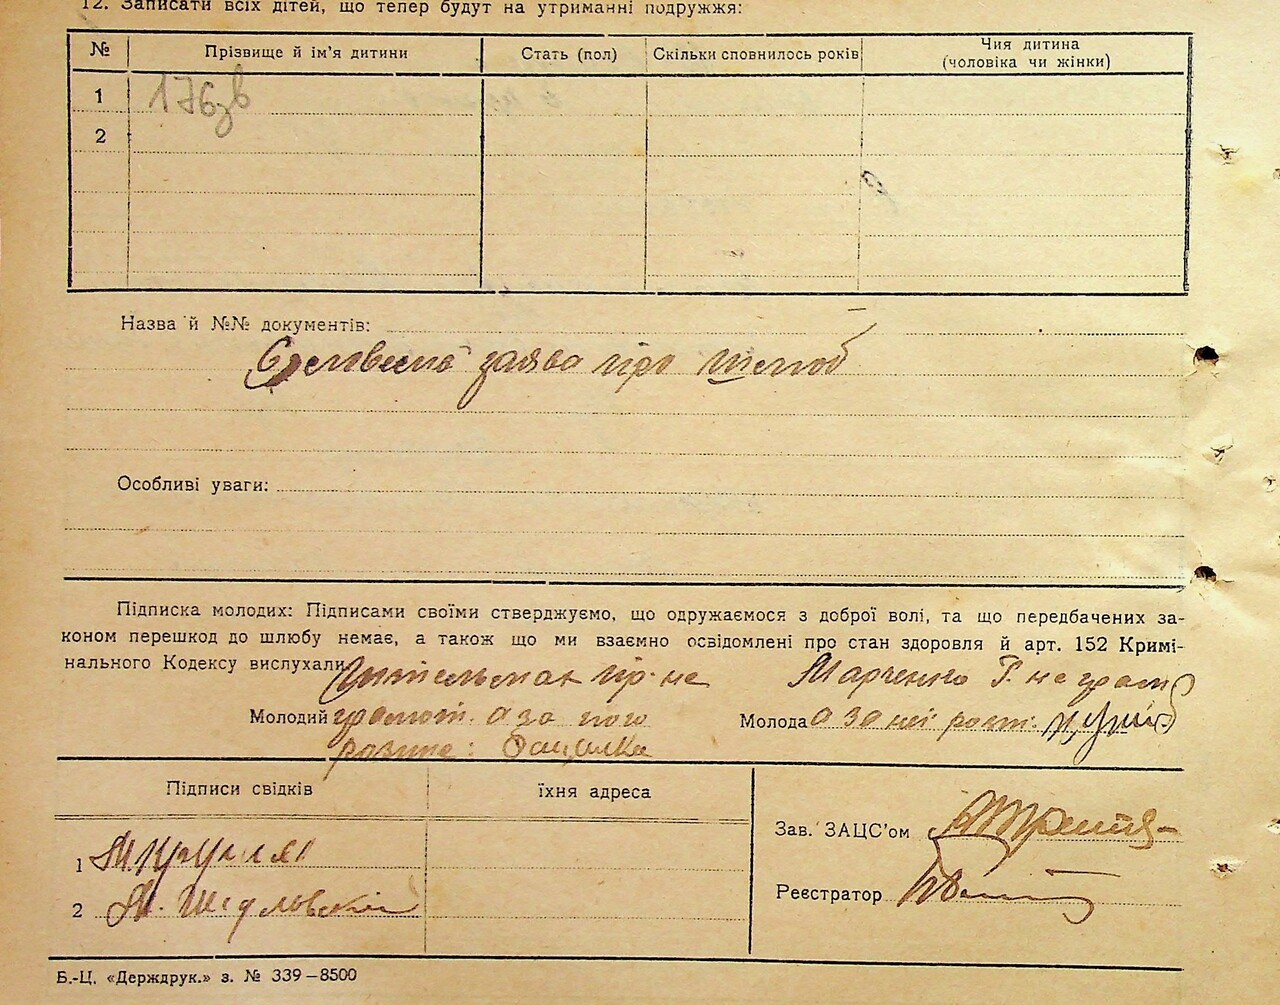 12. Записати всіх дітей, що тепер будут на утриманні подружжя:
№ Прізвище й ім'я дитини Стать (пол) Скільки сповнилось років Чия дитина (чоловіка чи жінки)
1 176зв
2
Назва й №№ документів:
Словесна заява про шлюб
Особливі уваги:
Підписка молодих: Підписами своїми стверджуємо, що одружаємося з доброї волі, та що передбачених за-
коном перешкод до шлюбу немає, а також що ми взаємно освідомлені про стан здоровля й арт. 152 Кримі-
нального Кодексу вислухали
не Марченко Г. не грам
Молодий грамот. а за його Молода а за неї розп:
розпис:
Підписи свідків їхня адреса
Зав. ЗАЦС'ом
1
2 Шидловский
Реєстратор
Б.-Ц. «Держдрук.» з. № 339—8500